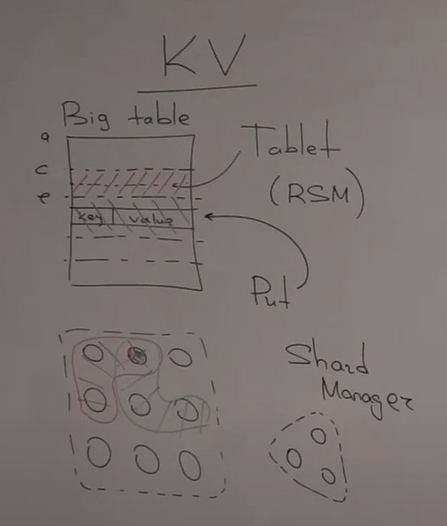 KV
Big table
a
c
e
key value
Tablet
(RSM)
Put
Shard
Manager